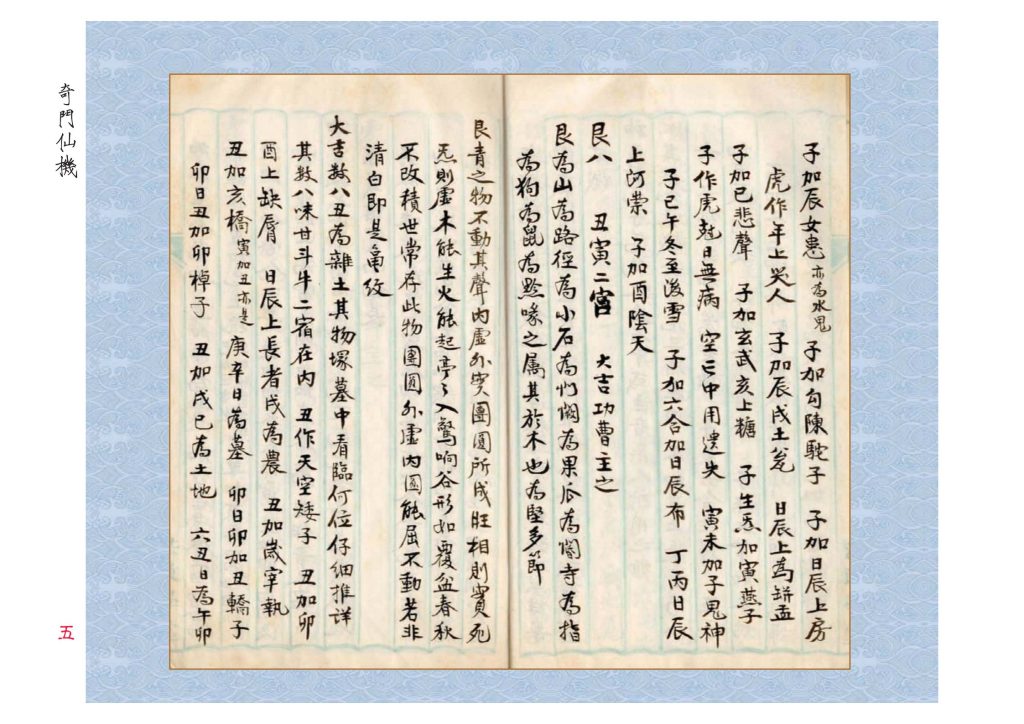 奇門仙機
子加辰女患亦為水鬼 子加勾陳駝子 子加日辰上房
虎作年上哭人 子加辰戌土瓮 日辰上為缾盂
子加巳悲聲 子加玄武亥上糖 子生炁加寅燕子
子作虎尅日無病 空亡中用遺失 寅未加子鬼神
子巳午冬至後雪 子加六合加日辰布 丁丙日辰
上河祟 子加酉陰天
艮八 丑寅二宮 大吉功曹主之
艮為山為路徑為小石為門闕為果瓜為閽寺為指
為狗為鼠為黔喙之属其於木也為堅多節
艮青之物不動其聲内虚外実團圓所成旺相則實死
炁則虚木能生火能起亭々入驚响谷形如覆盆春秋
不改積世常存此物團圓外虚内圓能屈不動若非
清白即是亀紋
大吉数八丑為雜土其物塚墓中看臨何位仔細推详
其数八味甘斗牛二宿在内 丑作天空矮子 丑加卯
酉上缺唇 日辰上長者戌為農 丑加歲宰執
丑加亥橋寅加丑亦是 庚辛日為墓 卯日卯加丑轎子
卯日丑加卯棹子 丑加戌巳為土地 六丑日為午卯
五